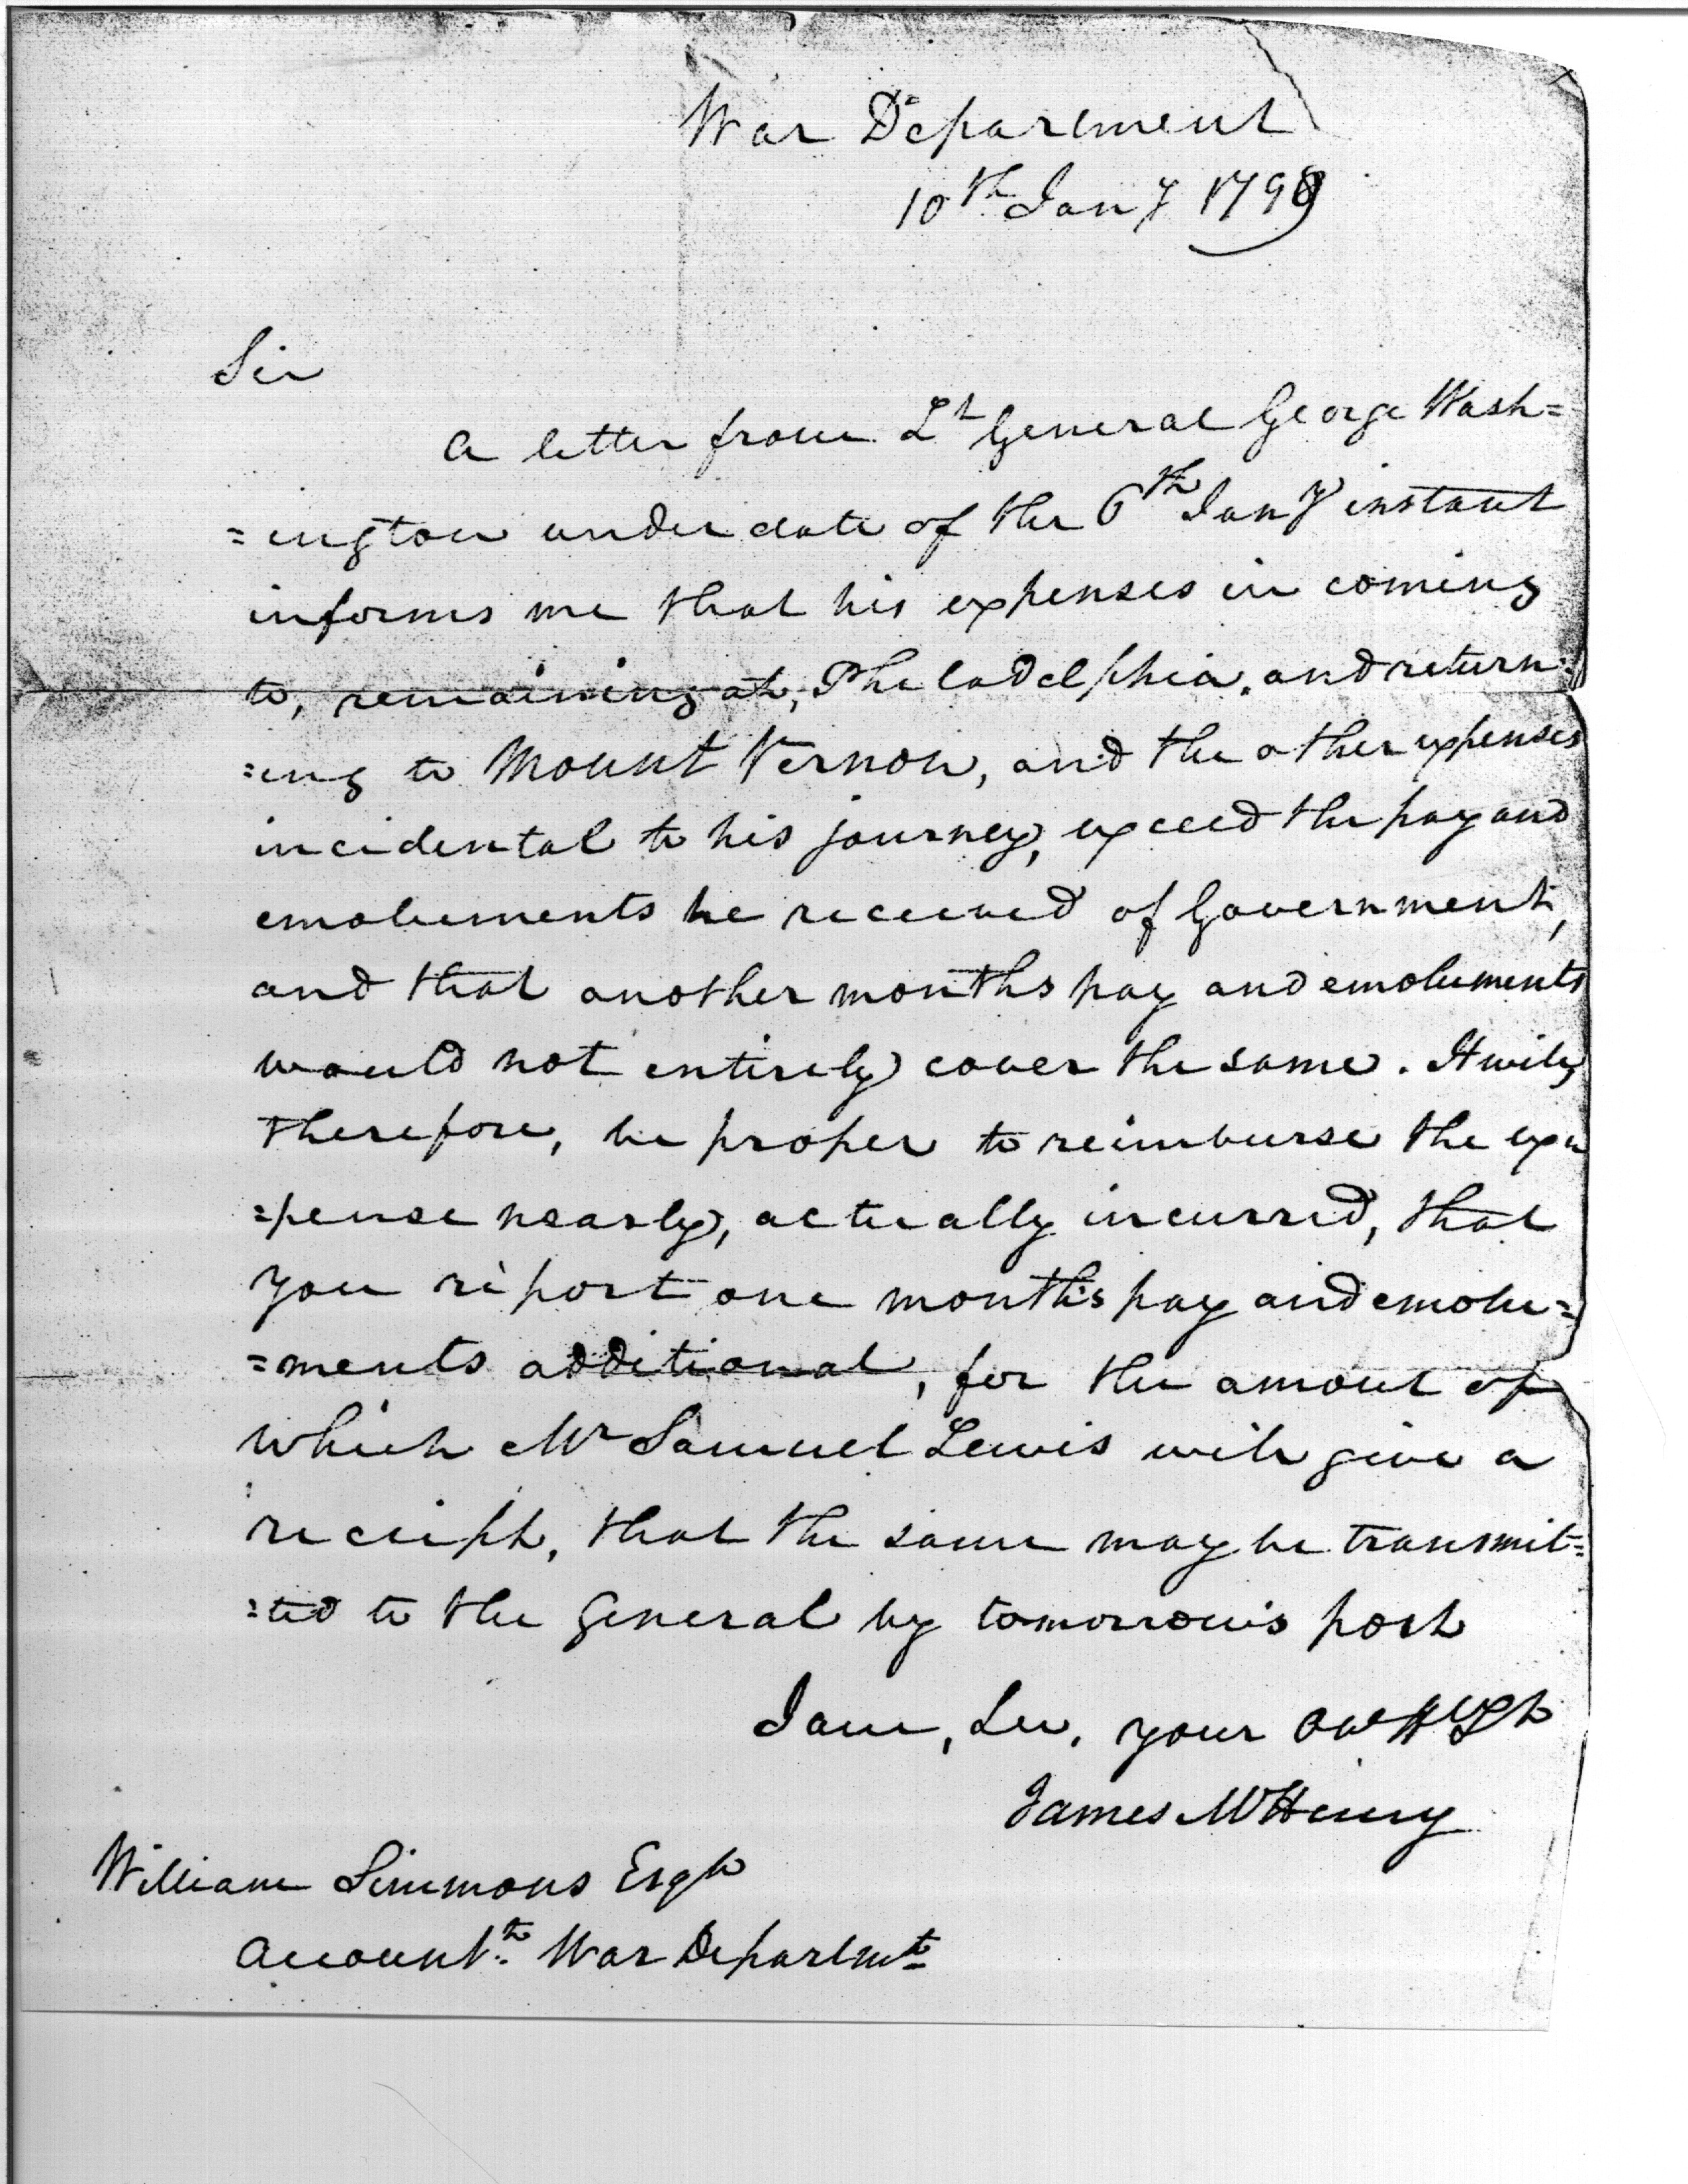 War Department
10th Jany 1799
Sir
A letter from Lt General George Wash=
=ington under date of the 6th Jany instant
informs me that his expenses in coming
to, remaining at, Philadelphia, and return=
=ing to Mount Vernon, and the other expenses
incidental to his journey, exceed the pay and
emoluments he received of Government,
and that another months pay and emoluments
would not entirely cover the same. It will,
therefore, be proper to reimburse the ex=
=pense nearly, actually incurred, that
you report one month's pay and emolu=
=ments additional, for the amout of
which Mr Samuel Lewis will give a
receipt, that the same may be transmit=
=ted to the General by tomorrow's post
I am, Sir, your
James McHenry
William Simmons Esqr
Accountt. War Departmt